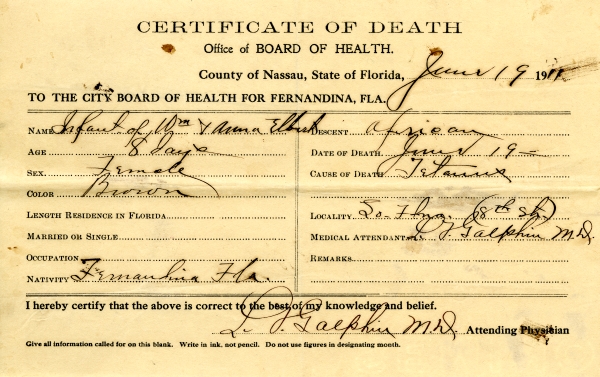 CERTIFICATE OF DEATH
Office of BOARD OF HEALTH.
County of Nassau, State of Florida, June 19 191
TO THE CITY BOARD OF HEALTH FOR FERNANDINA, FLA.
NAME Infant of Wm & Anna Elbert DESCENT African
AGE 8 days DATE OF DEATH June 19
SEX Female CAUSE OF DEATH Tetanus
COLOR Brown
LENGTH RESIDENCE IN FLORIDA LOCALITY So. Fdna. (8th St)
MARRIED OR SINGLE MEDICAL ATTENDANT Galphin M.D.
OCCUPATION REMARKS
NATIVITY Fernandina Fla.
I hereby certify that the above is correct to the best of my knowledge and belief.
Galphin M.D. Attending Physician
Give all information called for on this blank. Write in ink, not pencil. Do not use figures in designating month.